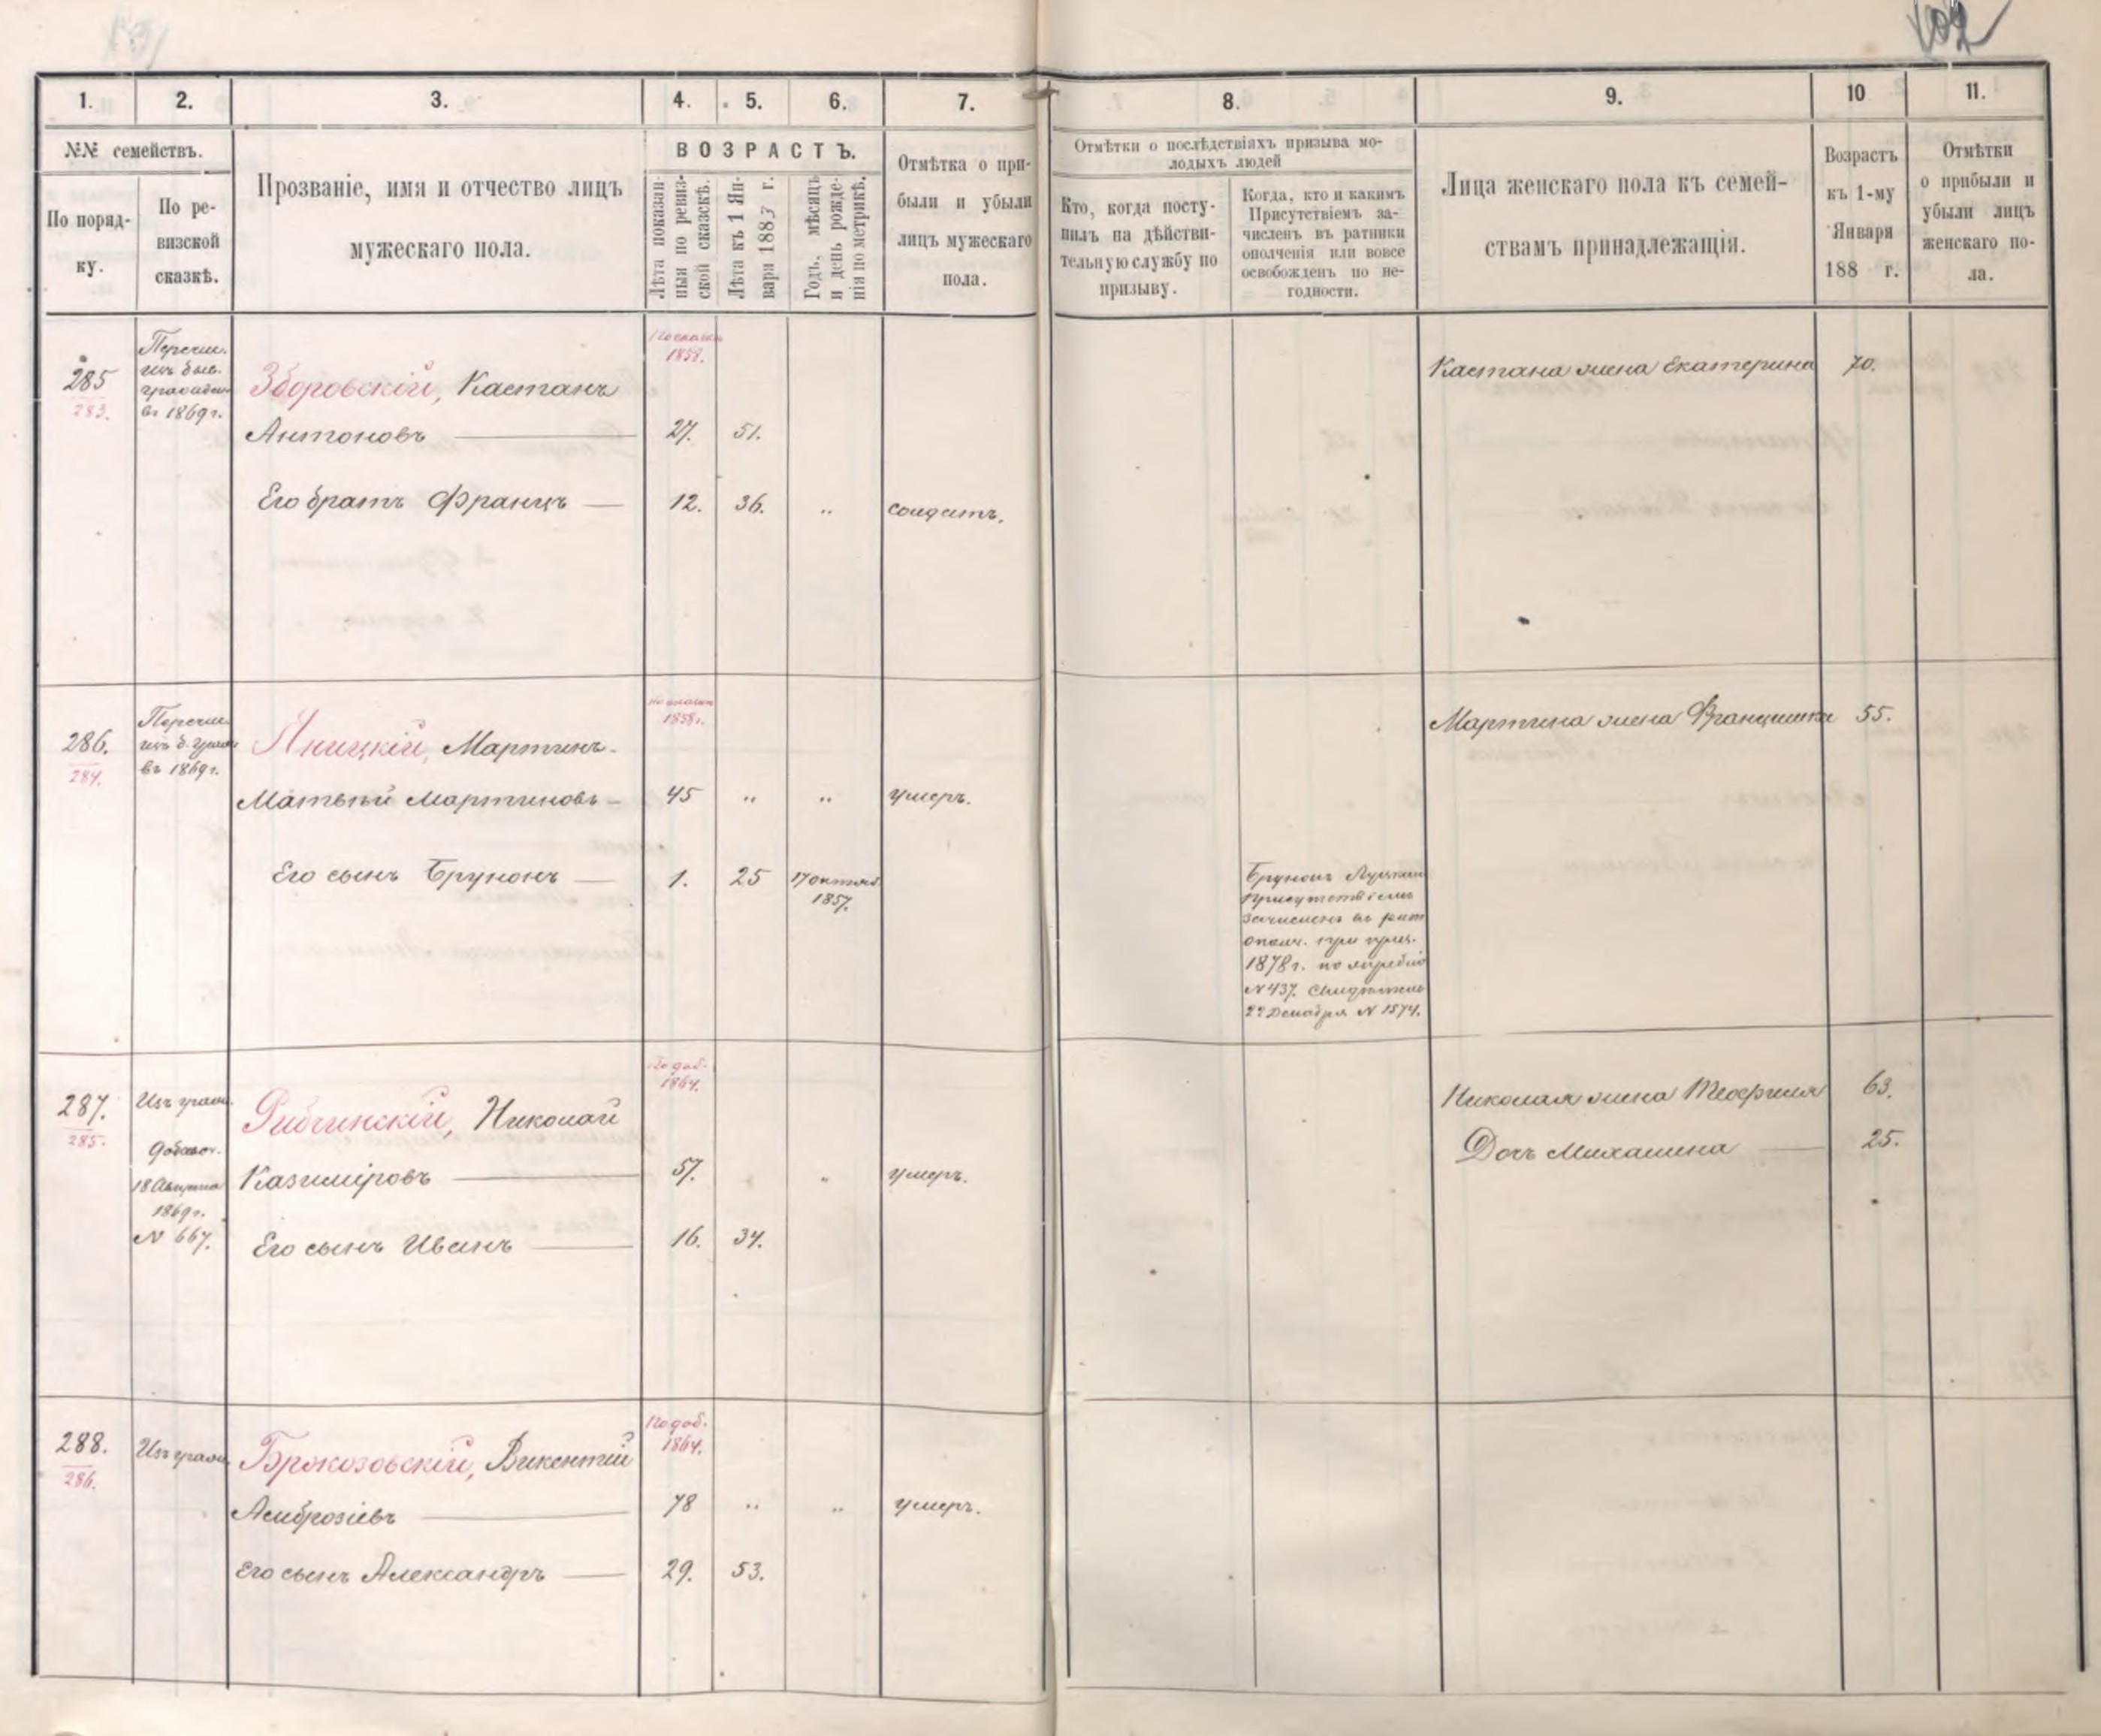 102
1. 2. 3. 4. 5. 6. 7. 8. 9. 10 11.
№№ семействъ.
По поряд-
ку.
По ре-
визской
сказкѣ.
Прозваніе, имя и отчество лицъ
мужескаго пола.
ВОЗРАСТЪ.
Лѣта показан-
ныя по ревиз-
ской сказкѣ.
Лѣта къ 1 Ян-
варя 1883 г.
Годъ, мѣсяцъ
и день рожде-
нія по метрикѣ.
Отмѣтка о при-
были и убыли
лицъ мужескаго
пола.
Отмѣтки о послѣдствіяхъ призыва мо-
лодыхъ людей
Кто, когда посту-
пилъ на дѣйстви-
тельную службу по
призыву.
Когда, кто и какимъ
Присутствіемъ за-
численъ въ ратники
ополченія или вовсе
освобожденъ по не-
годности.
Лица женскаго пола къ семей-
ствамъ принадлежащія.
Возрастъ
къ 1-му
Января
188 г.
Отмѣтки
о прибыли и
убыли лицъ
женскаго по-
ла.
285
283.
Перечис.
изъ быв.
граждан
въ 1869 г.
1858.
Зборовскій, Каетанъ
Антоновъ 27. 51.
Его братъ Францъ 12. 36. " солдатъ.
Каетана жена Екатерина 70.
286.
284.
Перечис.
изъ б. граж
въ 1869 г.
1858 г.
Яницкій, Мартинъ-
Матвѣй Мартиновъ 45 " " умеръ.
Его сынъ Брунонъ 1. 25 17 октяб.
1857.
Брунонъ Луцкимъ
присутствіемъ
зачисленъ въ рат
ополч. при приз.
1878 г. по жребію
№ 437. Свидѣтель
22 Декабря № 1574.
Мартина жена Францишка 55.
287.
285.
Изъ граж.
Добавоч.
18 Августа
1869 г.
№ 667.
По доб.
1864.
Рибчинскій, Николай
Казиміровъ 57. " умеръ.
Его сынъ Иванъ 16. 34.
Николая жена Теофиля 63.
Дочь Михалина 25.
288.
286.
Изъ граж.
По доб.
1864.
Бржозовскій, Викентій
Амброзіевъ 78 " " умеръ.
Его сынъ Александръ 29. 53.